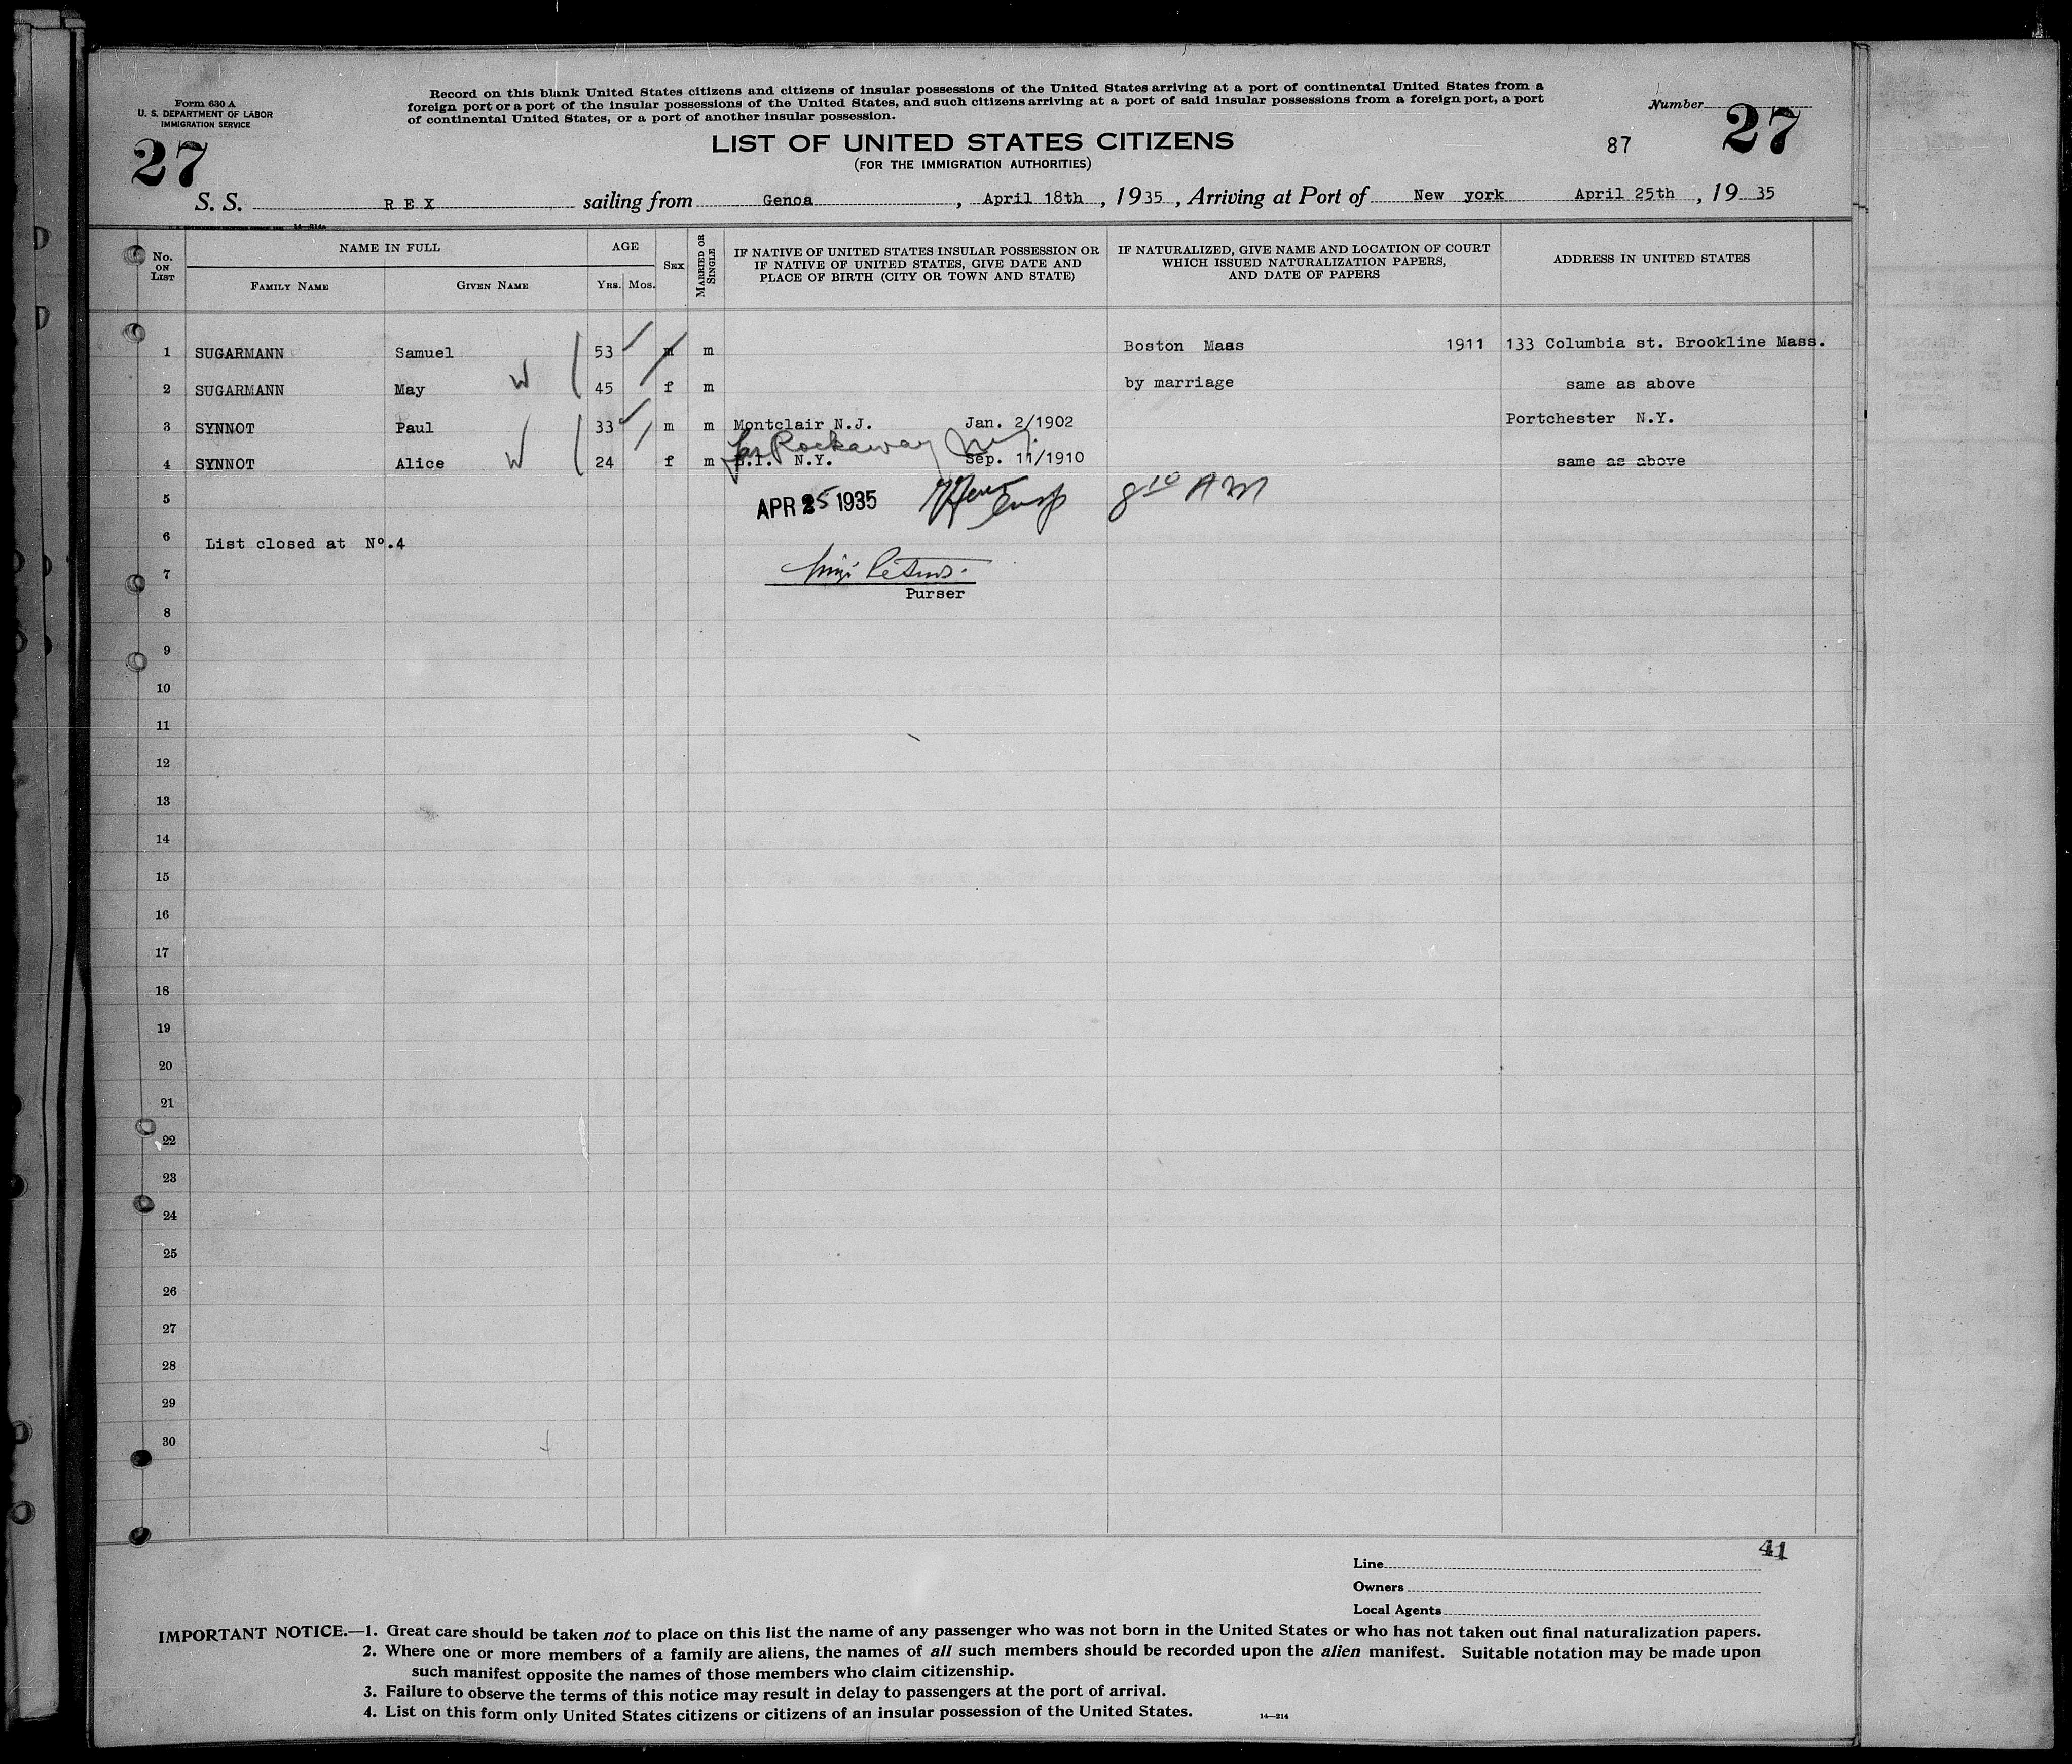 Form 630 A
U. S. DEPARTMENT OF LABOR
IMMIGRATION SERVICE
Record on this blank United States citizens and citizens of insular possessions of the United States arriving at a port of continental United States from a
foreign port or a port of the insular possessions of the United States, and such citizens arriving at a port of said insular possessions from a foreign port, a port
of continental United States, or a port of another insular possession.
Number
27
27
87
LIST OF UNITED STATES CITIZENS
(FOR THE IMMIGRATION AUTHORITIES)
S. S. REX sailing from Genoa, April 18th, 1935, Arriving at Port of New york April 25th, 19 35
No. ON LIST
NAME IN FULL
FAMILY NAME
GIVEN NAME
AGE
YRS. MOS.
SEX
MARRIED OR SINGLE
IF NATIVE OF UNITED STATES INSULAR POSSESSION OR
IF NATIVE OF UNITED STATES, GIVE DATE AND
PLACE OF BIRTH (CITY OR TOWN AND STATE)
IF NATURALIZED, GIVE NAME AND LOCATION OF COURT
WHICH ISSUED NATURALIZATION PAPERS,
AND DATE OF PAPERS
ADDRESS IN UNITED STATES
1 SUGARMANN Samuel 53 m m Boston Maas 1911 133 Columbia st. Brookline Mass.
2 SUGARMANN May W 45 f m by marriage same as above
3 SYNNOT Paul 33 m m Montclair N.J. Jan. 2/1902 Portchester N.Y.
Far Rockaway N.Y.
4 SYNNOT Alice W 24 f m N.Y. Sep. 11/1910 same as above
5 APR 25 1935 Insp 8 10 AM
6 List closed at Nº.4
7
Purser
8
9
10
11
12
13
14
15
16
17
18
19
20
21
22
23
24
25
26
27
28
29
30
41
Line
Owners
Local Agents
IMPORTANT NOTICE.—1. Great care should be taken not to place on this list the name of any passenger who was not born in the United States or who has not taken out final naturalization papers.
2. Where one or more members of a family are aliens, the names of all such members should be recorded upon the alien manifest. Suitable notation may be made upon
such manifest opposite the names of those members who claim citizenship.
3. Failure to observe the terms of this notice may result in delay to passengers at the port of arrival.
4. List on this form only United States citizens or citizens of an insular possession of the United States.
14—214